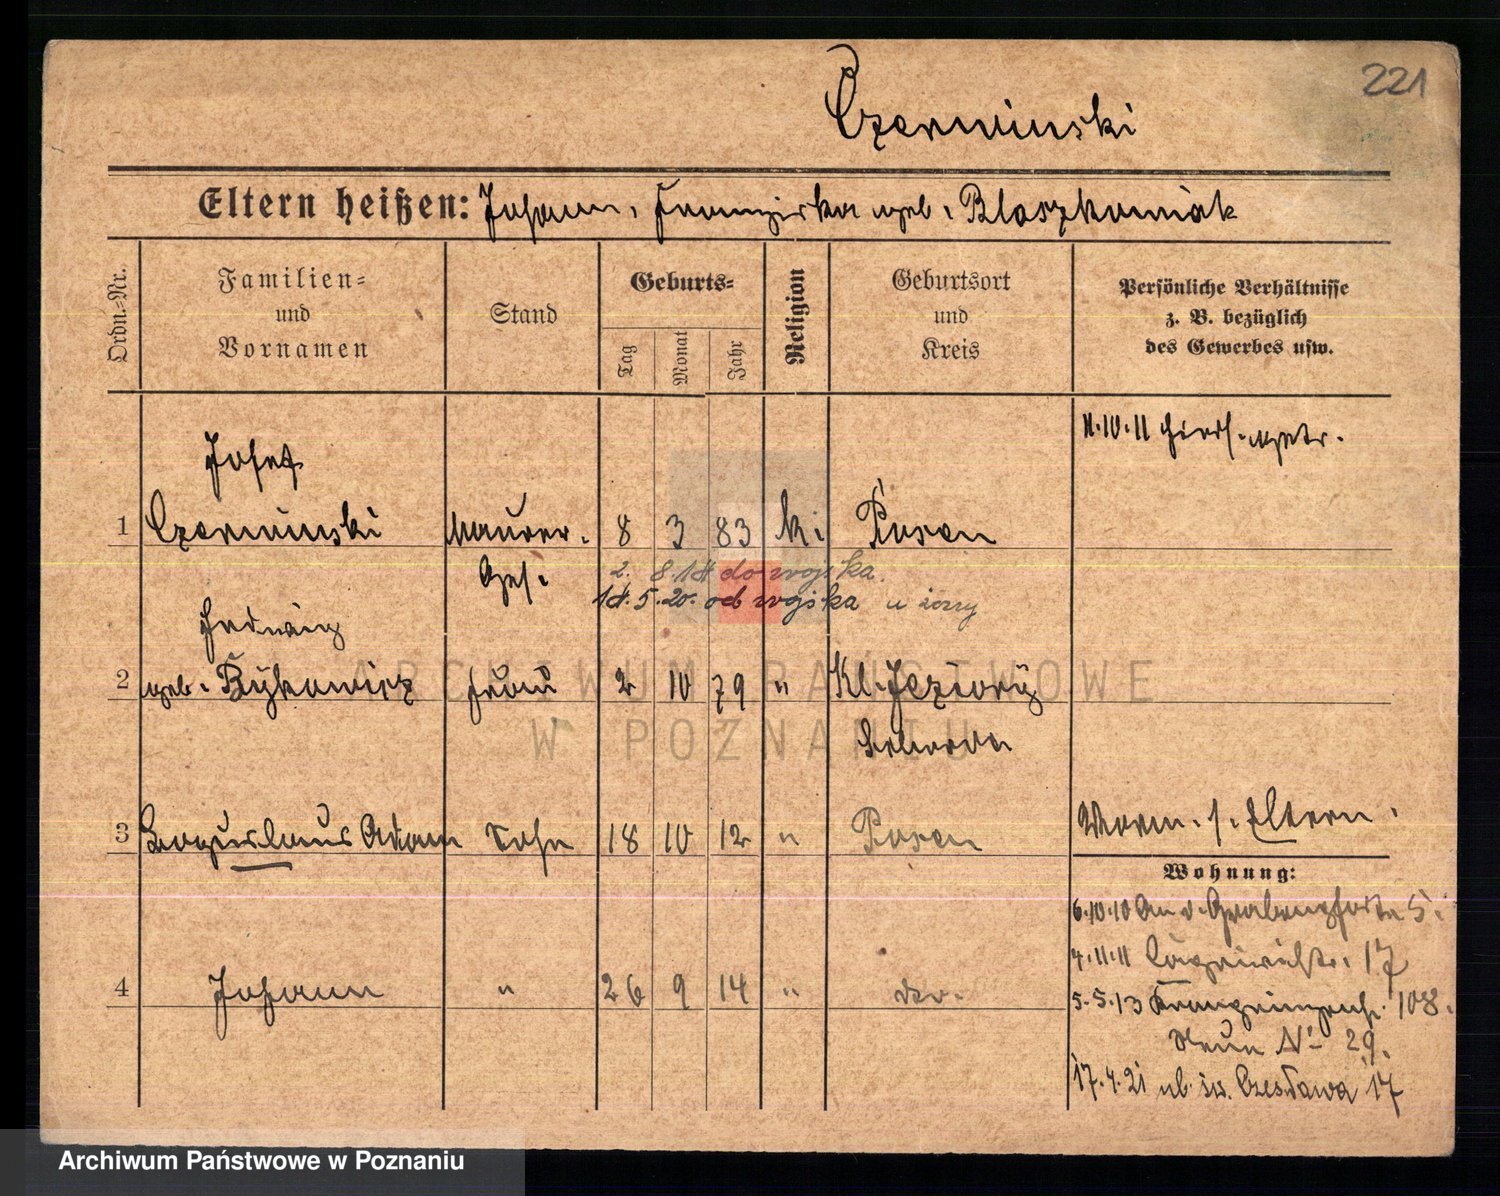 221
Czerwinski
Eltern heißen: Johann, Franziska geb. Blaszkowiak
Ordn.-Nr.
Familien= und Vornamen
Stand
Geburts=
Tag
Monat
Jahr
Religion
Geburtsort und Kreis
Persönliche Verhältnisse
z. B. bezüglich
des Gewerbes usw.
11.10.11 hiers. getr.
Josef
1 Czerwinski Maurer- 8 3 83 k. Posen
Ges.
2. 8.14 do wojska.
14.5.20. od wojska u żony
Hedwig
2 geb. Bykowicz Frau 2 10 79 " Kl. Jeziory
Schroda
3 Boguslaus Adam Sohn 18 10 12 " Posen
Verm. s. Eltern.
Wohnung:
6.10.10 An d. Grabenpforte 5.
4 Johann " 26 9 14 " do.
4.11.11 17
5.5.13 Kronprinzenstr. 108.
Neue № 29.
17.4.21 ul. św. Czesława 17
ARCHIWUM PAŃSTWOWE
W POZNANIU
Archiwum Państwowe w Poznaniu